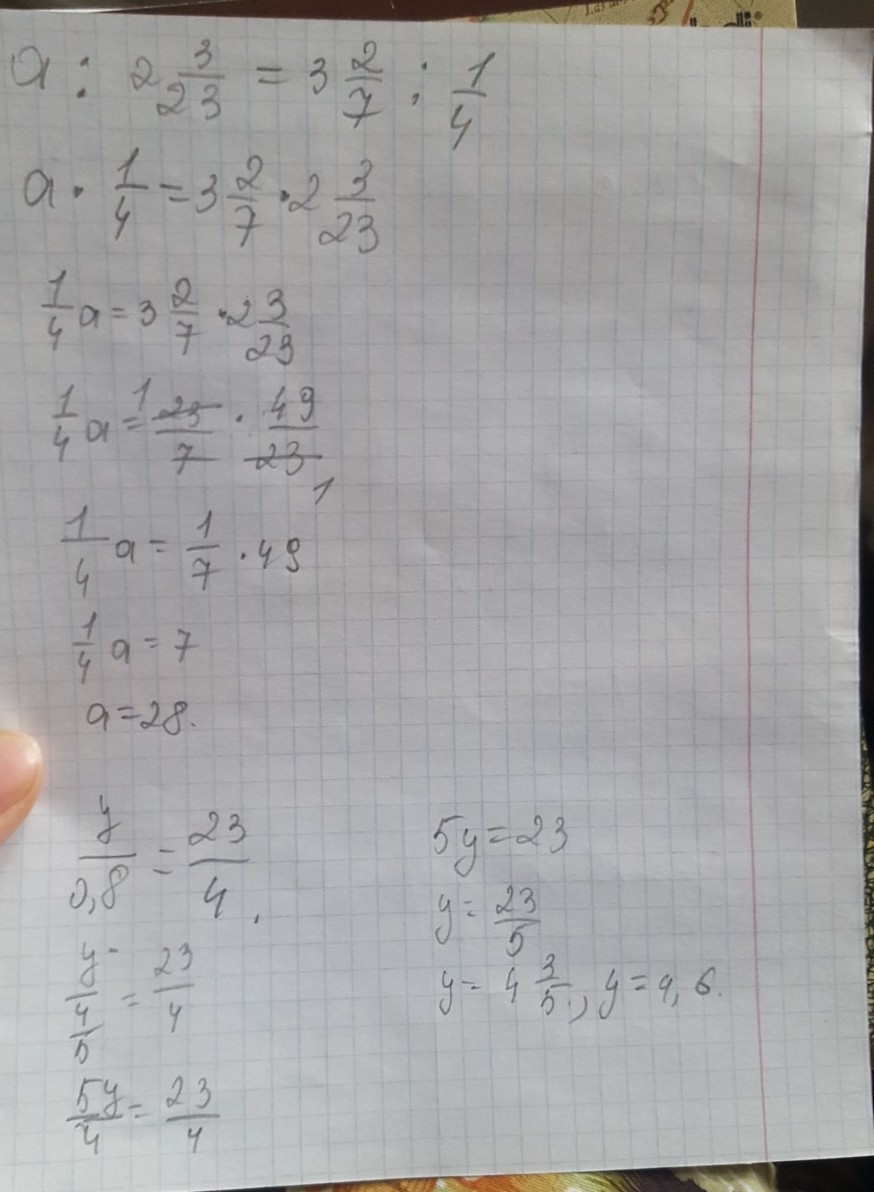 a : 2 3/23 = 3 2/7 : 1/4
a · 1/4 = 3 2/7 · 2 3/23
1/4 a = 3 2/7 · 2 3/23
1/4 a = 1 23/7 · 49/23 1
1/4 a = 1/7 · 49
1/4 a = 7
a = 28.
y/0,8 = 23/4
y/(4/5) = 23/4
5y/4 = 23/4
5y = 23
y = 23/5
y = 4 3/5, y = 4,6.